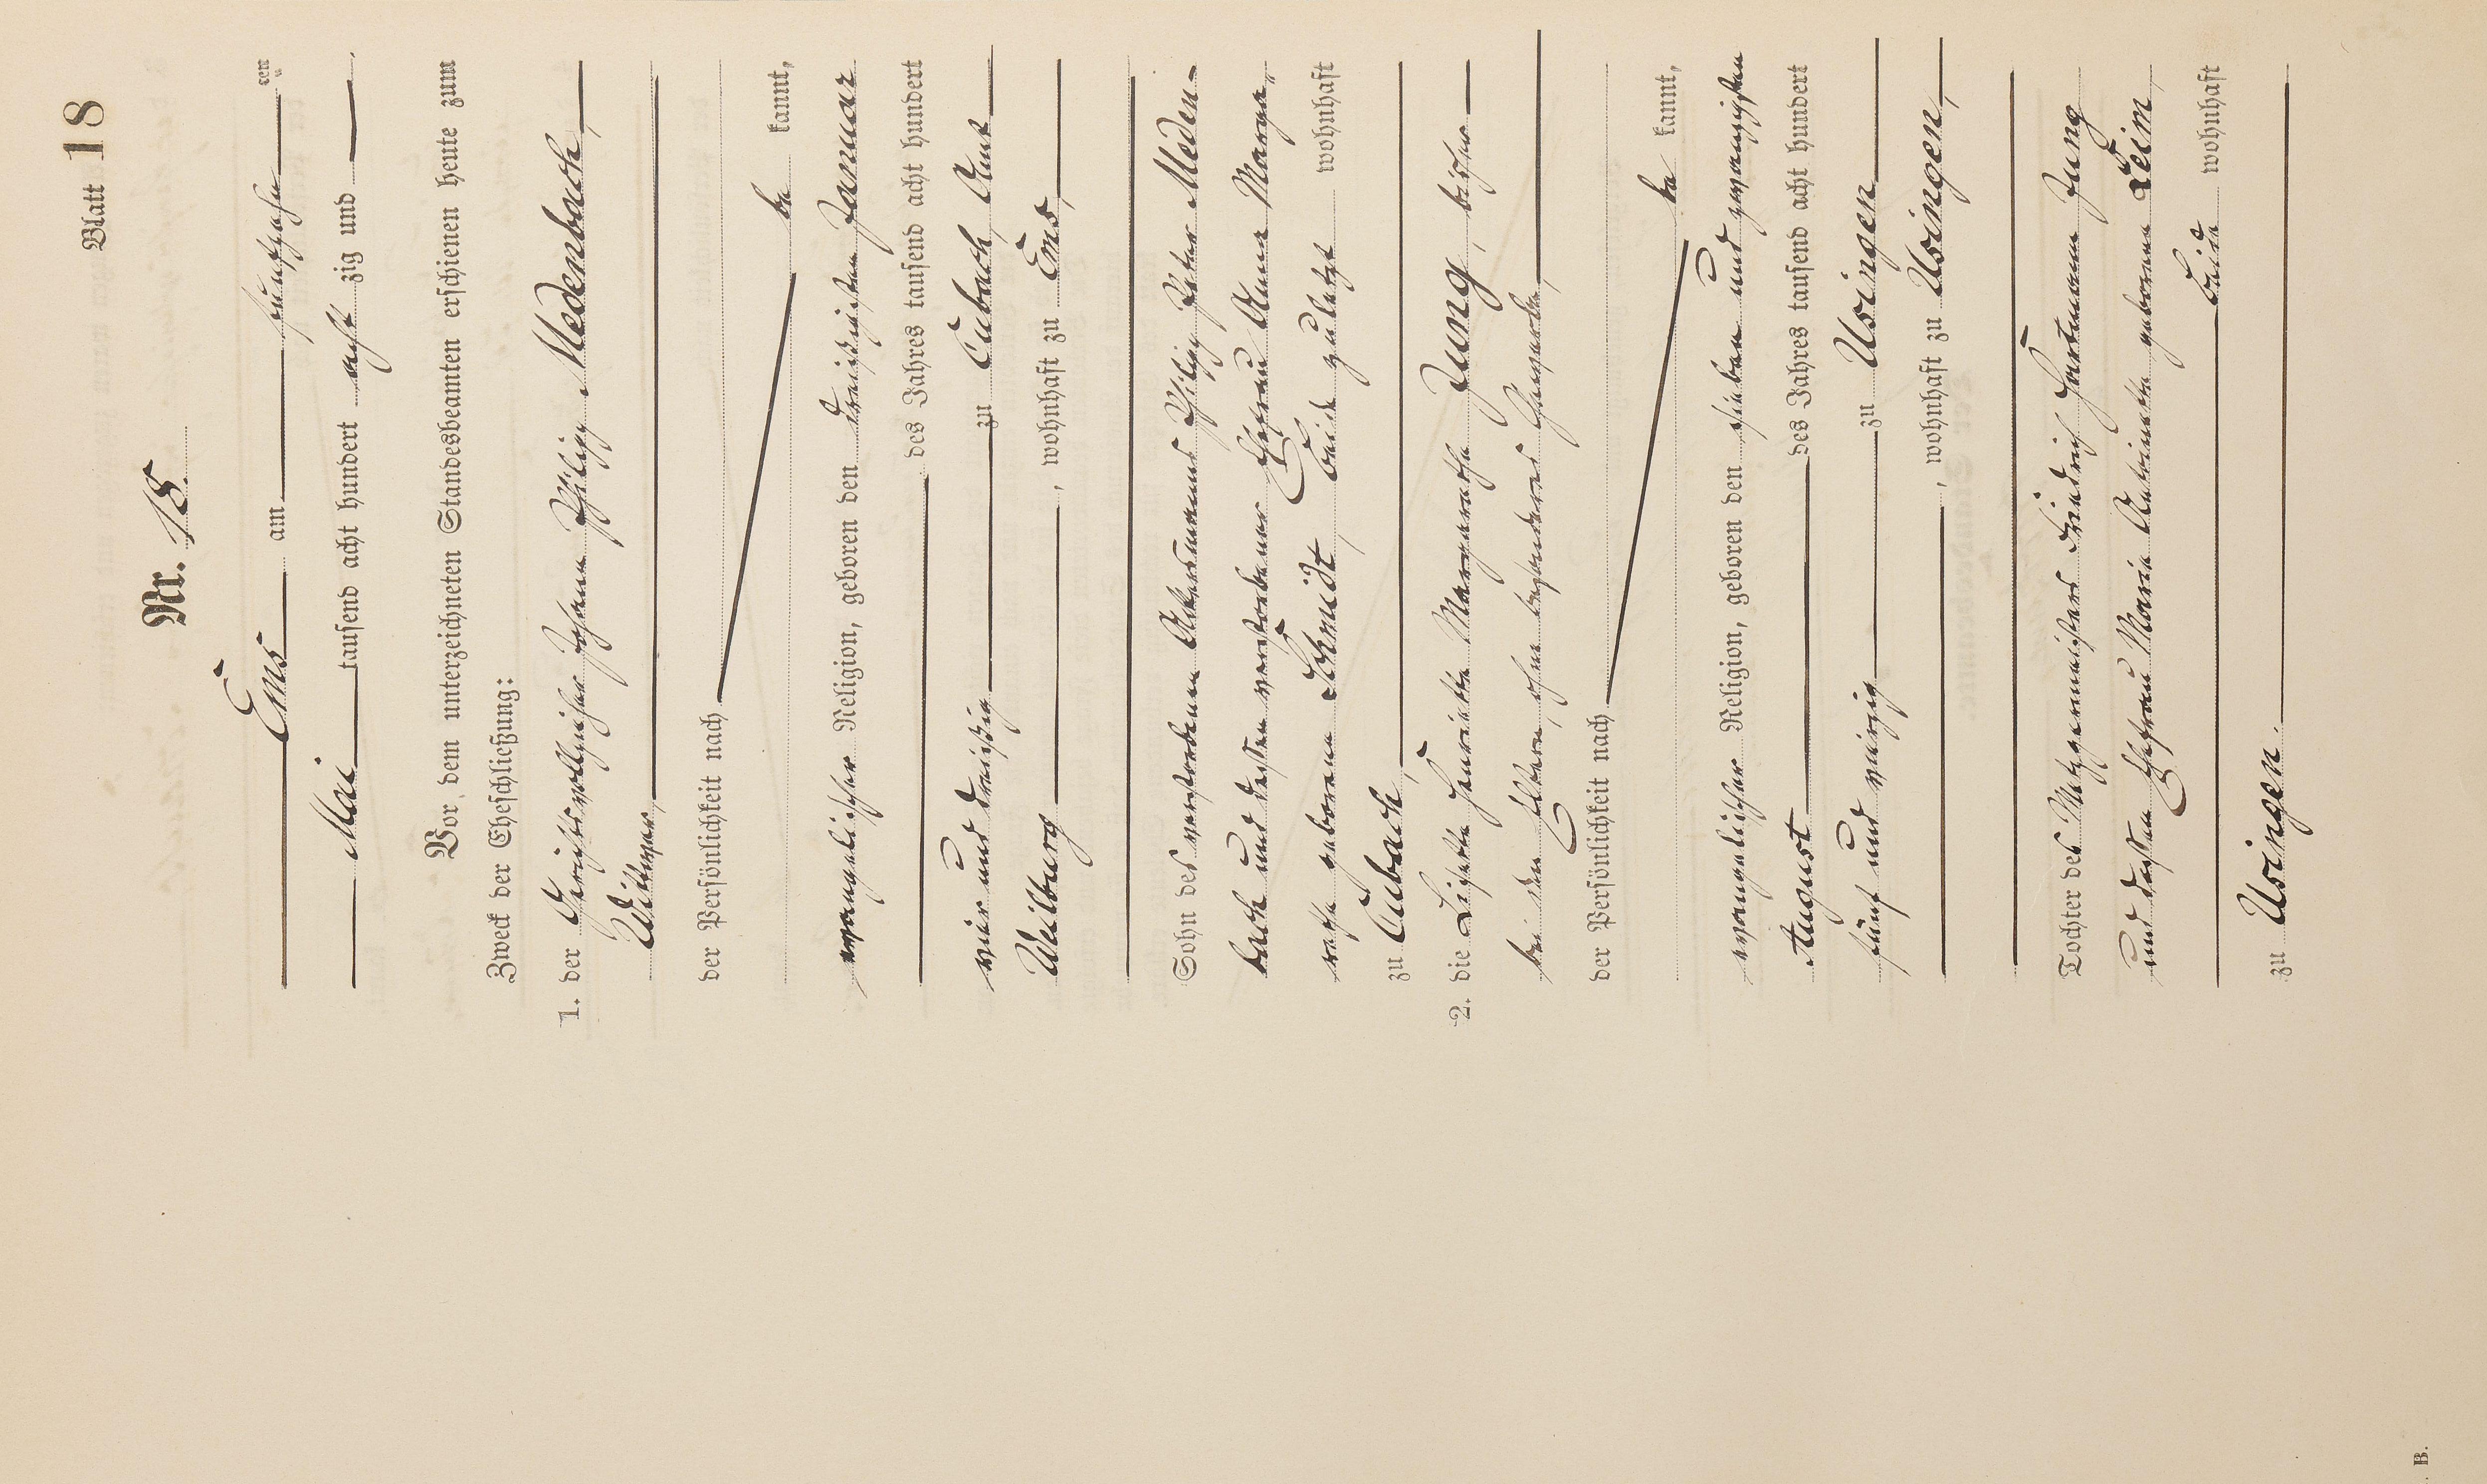 Blatt 18
Nr. 18.
Ems am fünfzehn ten
Mai tausend acht hundert acht zig und
Vor dem unterzeichneten Standesbeamten erschienen heute zum
Zweck der Eheschließung:
1. der Gerichtsvollzieher Johann Philipp Medenbach,
Wittwer,
der Persönlichkeit nach
be kannt,
evangelischer Religion, geboren den dreißigsten Januar
des Jahres tausend acht hundert
vier und dreißig zu Cubach, Amt
Weilburg, wohnhaft zu Ems,
Sohn des verstorbenen Ackersmanns Philipp Peter Meden-
bach und dessen verstorbener Ehefrau Anna Marga-
retha geborenen Schmidt, Beide zuletzt wohnhaft
zu Cubach,
2. die Lisette Henriette Margaretha Jung, bisher
bei den Eltern, ohne besonderes Gewerbe,
der Persönlichkeit nach
be kannt,
evangelischer Religion, geboren den sieben und zwanzigsten
August des Jahres tausend acht hundert
fünf und vierzig zu Usingen
, wohnhaft zu Usingen,
Tochter des Metzgermeisters Friedrich Hartmann Jung
und dessen Ehefrau Maria Katrinette geborenen Leim,
Beide wohnhaft
zu Usingen.
B.